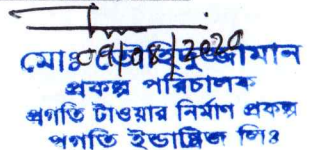 ০৭/০৪/2020
মোঃ তৌহিদুজ্জামান
প্রকল্প পরিচালক
প্রগতি টাওয়ার নির্মাণ প্রকল্প
প্রগতি ইন্ডাস্ট্রিজ লিঃ